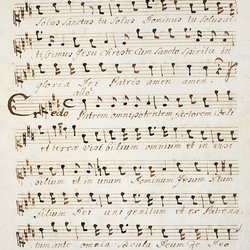 Solus Sanctus tu Solus Dominus tu Solus al
tissimus Jesu Christe Cum Sancto Spiritu in
gloria Dei Patris amen amen.
allo
Credo Patrem omnipotentem factorem Coeli
et terrae visibilium omnium et in visi
bilium et in unum Dominum Jesum Xtum
filium Dei uni genitum et ex Patre na
tum ante omnia Saecula Deum de Deo